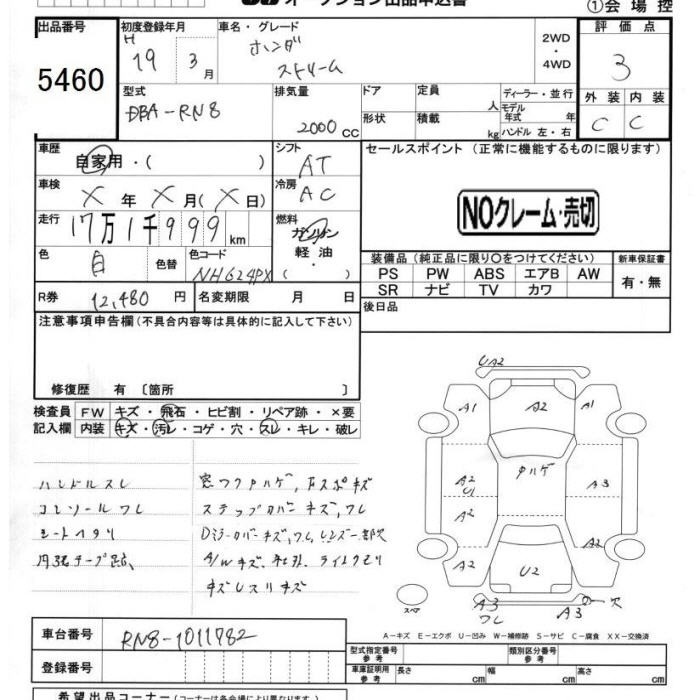 オークション出品申込書
①会場控
出品番号 初度登録年月 車名・グレード 2WD・4WD 評価点
5460 H 19年 3月 ホンダ ストリーム 3
型式 排気量 ドア 定員 人 ディーラー・並行 外装 内装
DBA-RN8 2000cc 形状 積載 kg モデル年式 年 ハンドル 左・右 C C
車歴 自家用・( ) シフト AT セールスポイント (正常に機能するものに限ります)
車検 X年 X月(X日) 冷房 AC
NOクレーム・売切
走行 17万1千999km 燃料 ガソリン・軽油・( )
装備品 (純正品に限り○をつけてください) 新車保証書
色 白 色替 色コード NH624PX
PS PW ABS エアB AW 有・無
SR ナビ TV カワ
R券 12,480円 名変期限 月 日
後日品
注意事項申告欄 (不具合内容等は具体的に記入して下さい)
修復歴 有 〔箇所 〕
検査員記入欄 FW キズ・飛石・ヒビ割・リペア跡・×要
内装 キズ・汚レ・コゲ・穴・スレ・キレ・破レ
ハンドルスレ
コンソールワレ
シートヘタリ
ステップカバーキズ,ワレ
UA2
A1 A2 A1
A2 U1 A3
A2
A2 U2 A2
A3 ワレ A3
スペア
A-キズ E-エクボ U-凹み W-補修跡 S-サビ C-腐食 XX-交換済
車台番号 RN8-1011782
登録番号
型式指定番号 参考 類別区分番号 参考
車庫証明用 参考 長さ cm 幅 cm 高さ cm
希望出品コーナー (コーナーは各会場により異なります)